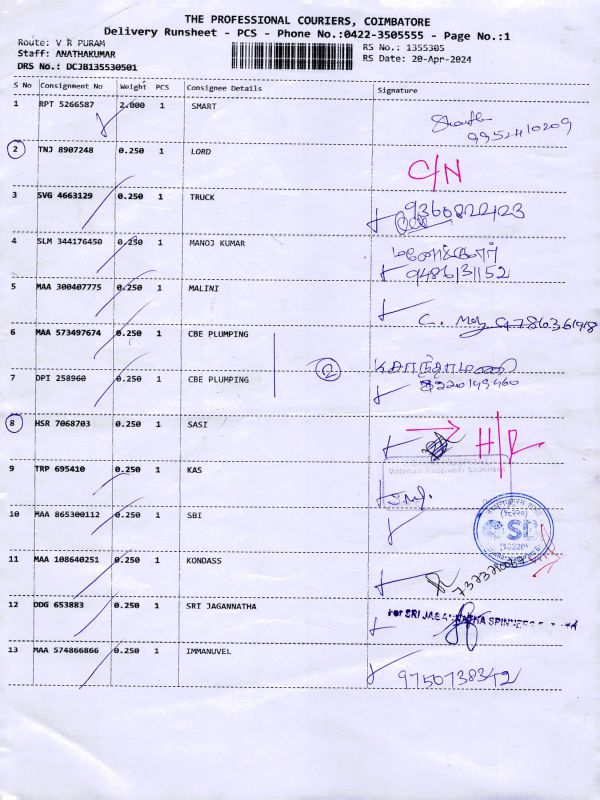 THE PROFESSIONAL COURIERS, COIMBATORE
Delivery Runsheet - PCS - Phone No.:0422-3505555 - Page No.:1
Route: V R PURAM
RS No.: 1355305
Staff: ANATHAKUMAR
RS Date: 20-Apr-2024
DRS No.: DCJB135530501
S No Consignment No Weight PCS Consignee Details Signature
1 RPT 5266587 2.000 1 SMART
9952410209
2 TNJ 8907248 0.250 1 LORD
C/N
3 SVG 4663129 0.250 1 TRUCK
4 SLM 344176450 0.250 1 MANOJ KUMAR
மனோக்குமார்
9486131152
5 MAA 300407775 0.250 1 MALINI
6 MAA 573497674 0.250 1 CBE PLUMPING
2
7 DPI 258960 0.250 1 CBE PLUMPING
8220149460
8 HSR 7068703 0.250 1 SASI
H/R
Materials Received / Expenses
9 TRP 695410 0.250 1 KAS
10 MAA 865300112 0.250 1 SBI
SB
11 MAA 108640251 0.250 1 KONDASS
12 DDG 653883 0.250 1 SRI JAGANNATHA
For SRI JAGANNATHA SPINNERS
13 MAA 574866866 0.250 1 IMMANUVEL
9750738342